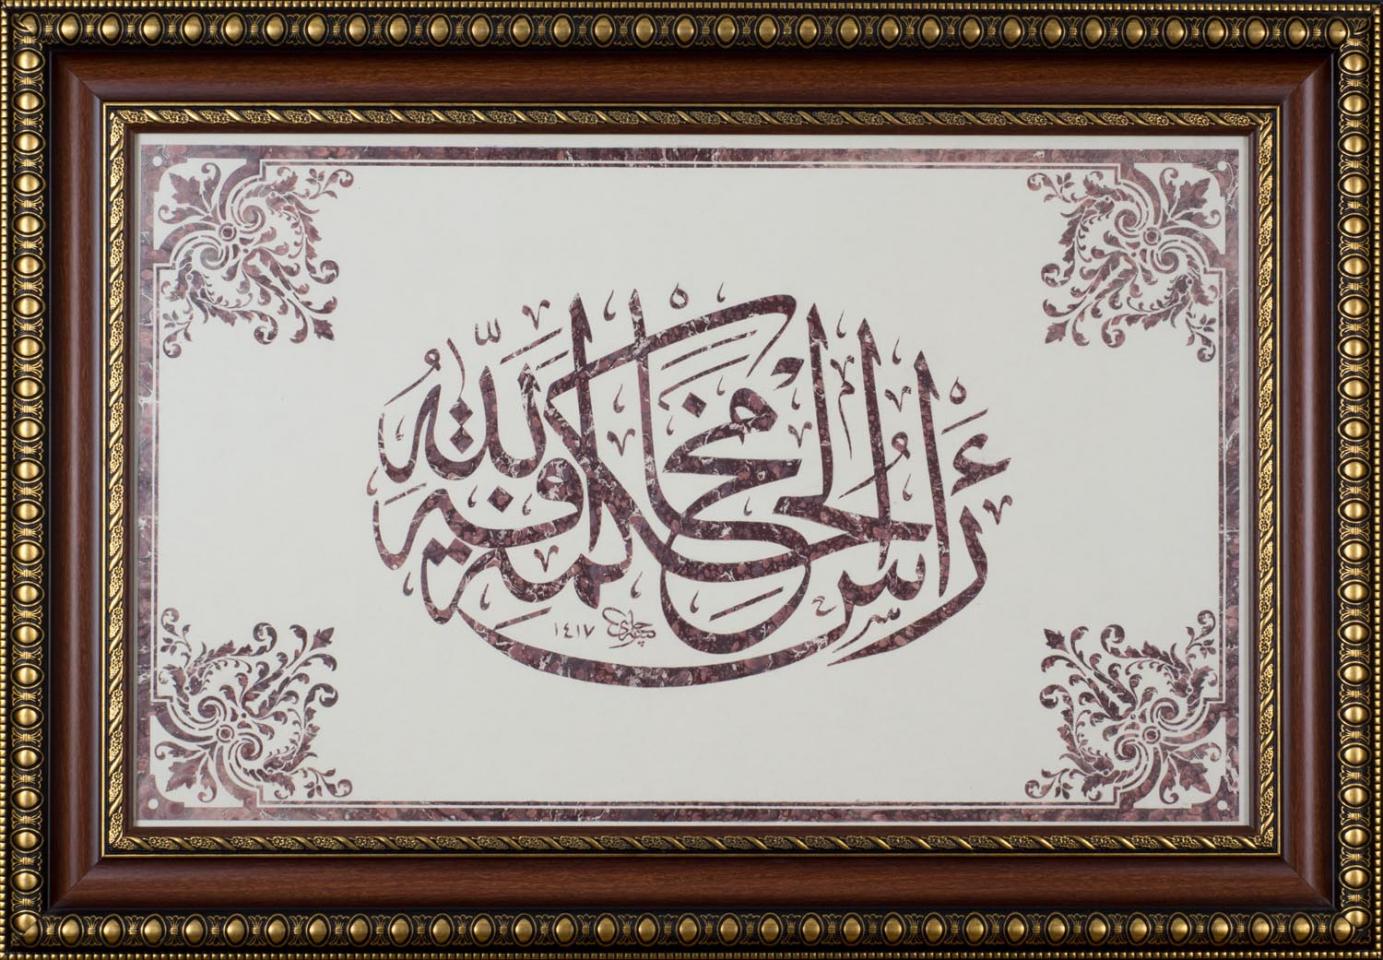 رَأْسُ الْحِكْمَةِ مَخَافَةُ اللّٰهِ
١٤١٧